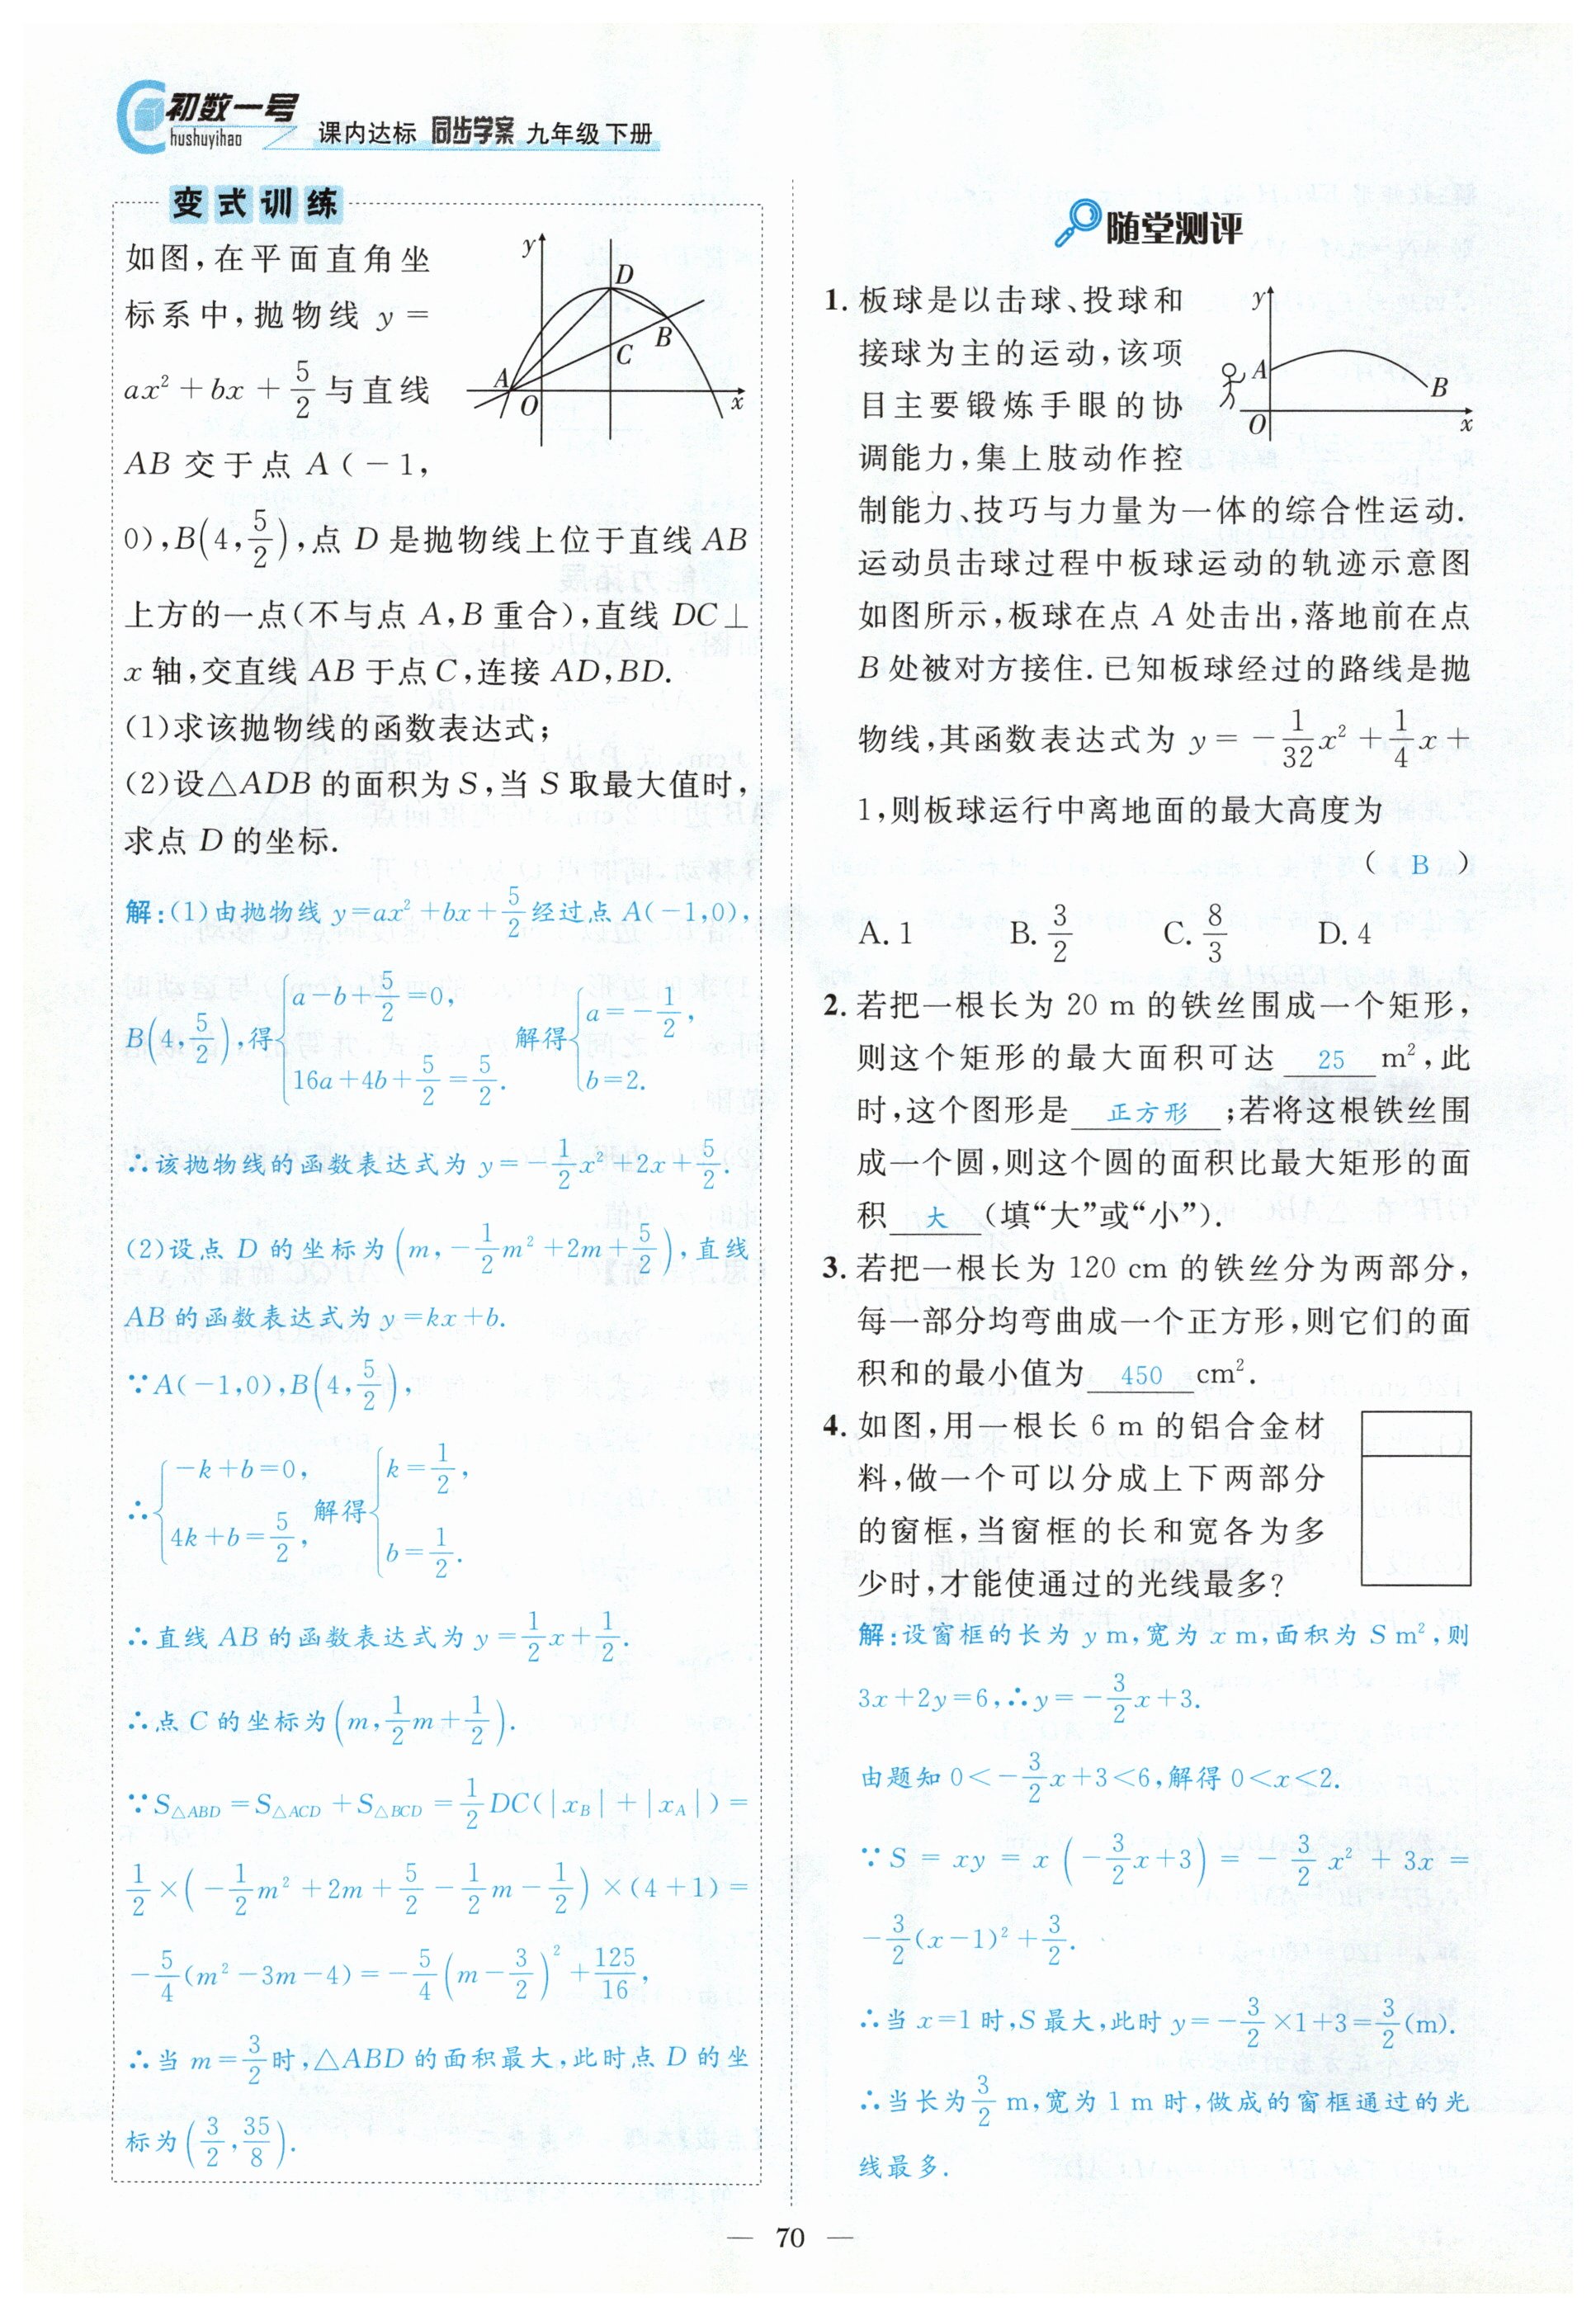 初数一号
hushuyihao
课内达标 同步学案 九年级下册
变式训练
如图,在平面直角坐
标系中,抛物线 y=
ax²+bx+5/2与直线
AB 交于点 A(-1,
0),B(4,5/2),点 D 是抛物线上位于直线 AB
上方的一点(不与点 A,B 重合),直线 DC⊥
x 轴,交直线 AB 于点 C,连接 AD,BD.
(1)求该抛物线的函数表达式;
(2)设△ADB 的面积为 S,当 S 取最大值时,
求点 D 的坐标.
y
D
B
C
A
O
x
解:(1)由抛物线 y=ax²+bx+5/2经过点 A(-1,0),
B(4,5/2),得{a-b+5/2=0, 16a+4b+5/2=5/2. 解得{a=-1/2, b=2.
∴该抛物线的函数表达式为 y=-1/2x²+2x+5/2.
(2)设点 D 的坐标为(m,-1/2m²+2m+5/2),直线
AB 的函数表达式为 y=kx+b.
∵A(-1,0),B(4,5/2),
∴{-k+b=0, 4k+b=5/2, 解得{k=1/2, b=1/2.
∴直线 AB 的函数表达式为 y=1/2x+1/2.
∴点 C 的坐标为(m,1/2m+1/2).
∵S△ABD=S△ACD+S△BCD=1/2DC(|xB|+|xA|)=
1/2×(-1/2m²+2m+5/2-1/2m-1/2)×(4+1)=
-5/4(m²-3m-4)=-5/4(m-3/2)²+125/16,
∴当 m=3/2时,△ABD 的面积最大,此时点 D 的坐
标为(3/2,35/8).
随堂测评
1.板球是以击球、投球和
接球为主的运动,该项
目主要锻炼手眼的协
调能力,集上肢动作控
制能力、技巧与力量为一体的综合性运动.
运动员击球过程中板球运动的轨迹示意图
如图所示,板球在点 A 处击出,落地前在点
B 处被对方接住.已知板球经过的路线是抛
物线,其函数表达式为 y=-1/32x²+1/4x+
1,则板球运行中离地面的最大高度为
( B )
y
A
B
O
x
A.1 B.3/2 C.8/3 D.4
2.若把一根长为 20 m 的铁丝围成一个矩形,
则这个矩形的最大面积可达 25 m²,此
时,这个图形是 正方形 ;若将这根铁丝围
成一个圆,则这个圆的面积比最大矩形的面
积 大 (填“大”或“小”).
3.若把一根长为 120 cm 的铁丝分为两部分,
每一部分均弯曲成一个正方形,则它们的面
积和的最小值为 450 cm².
4.如图,用一根长 6 m 的铝合金材
料,做一个可以分成上下两部分
的窗框,当窗框的长和宽各为多
少时,才能使通过的光线最多?
解:设窗框的长为 y m,宽为 x m,面积为 S m²,则
3x+2y=6,∴y=-3/2x+3.
由题知 0<-3/2x+3<6,解得 0<x<2.
∵S=xy=x(-3/2x+3)=-3/2x²+3x=
-3/2(x-1)²+3/2.
∴当 x=1 时,S 最大,此时 y=-3/2×1+3=3/2(m).
∴当长为3/2 m,宽为 1 m 时,做成的窗框通过的光
线最多.
— 70 —